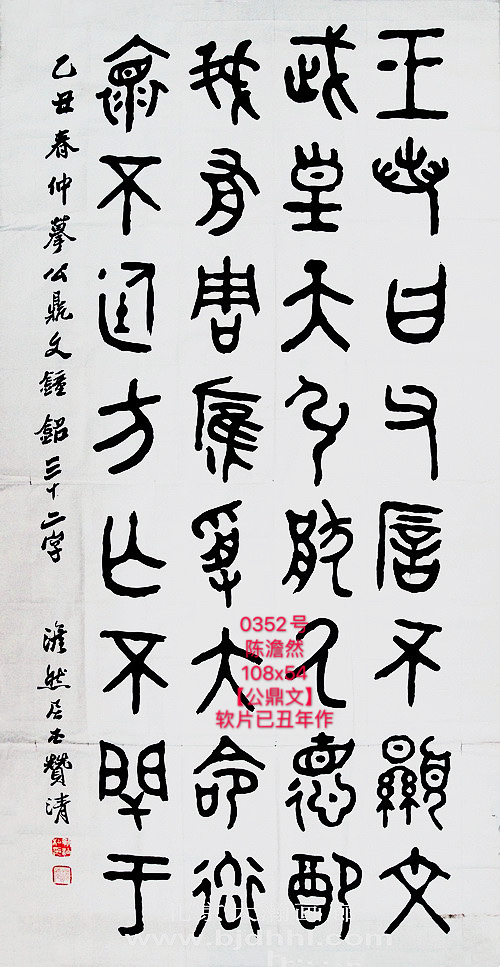 王若曰父不顯文
武皇天引猒厥德配
我有周膺受大命率
懷不廷方亡不閈于
乙丑春仲摹公鼎文鐘銘三十二字 澹然居士贊清
0352号
陈澹然
108x54
【公鼎文】
软片已丑年作
www.bjdhhl.com